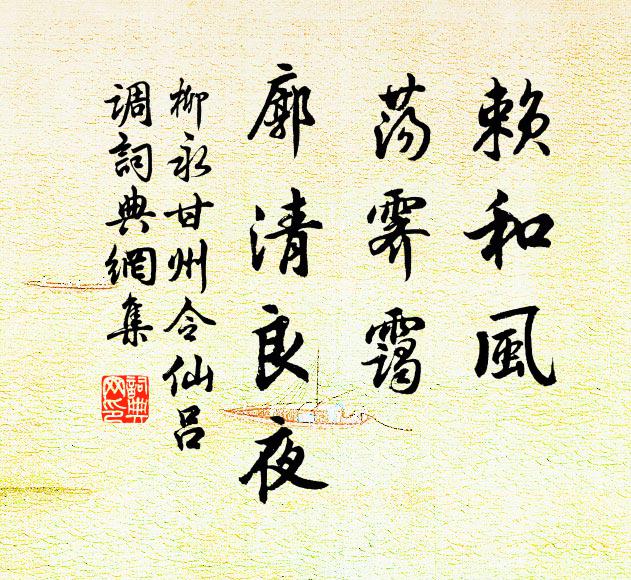 賴和風
蕩霽靄
廓清良夜
柳永甘州令仙呂
调詞典網集
詞典
网印